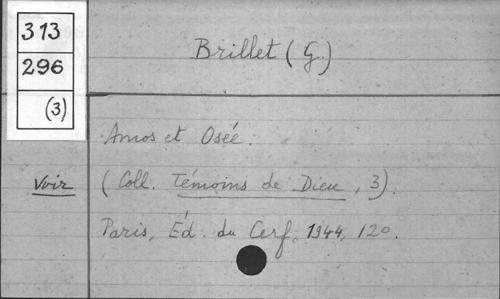 313
296
(3)
Brillet (G.)
Amos et Osée.
Voir
(Coll. Témoins de Dieu, 3).
Paris, Éd. du Cerf, 1944, 120.